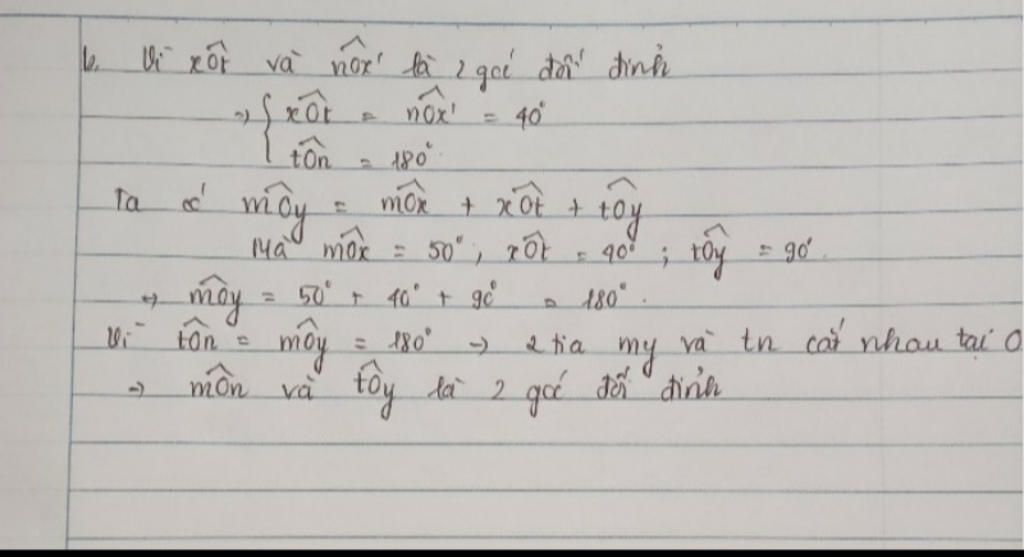 b. Vì xÔt và nÔx' là 2 góc đối đỉnh
=> { xÔt = nÔx' = 40°
tÔn = 180°
Ta có mÔy = mÔx + xÔt + tÔy
Mà mÔx = 50°, xÔt = 40° ; tÔy = 90°.
=> mÔy = 50° + 40° + 90° = 180°.
Vì tÔn = mÔy = 180° -> 2 tia my và tn cắt nhau tại O
-> mÔn và tÔy là 2 góc đối đỉnh